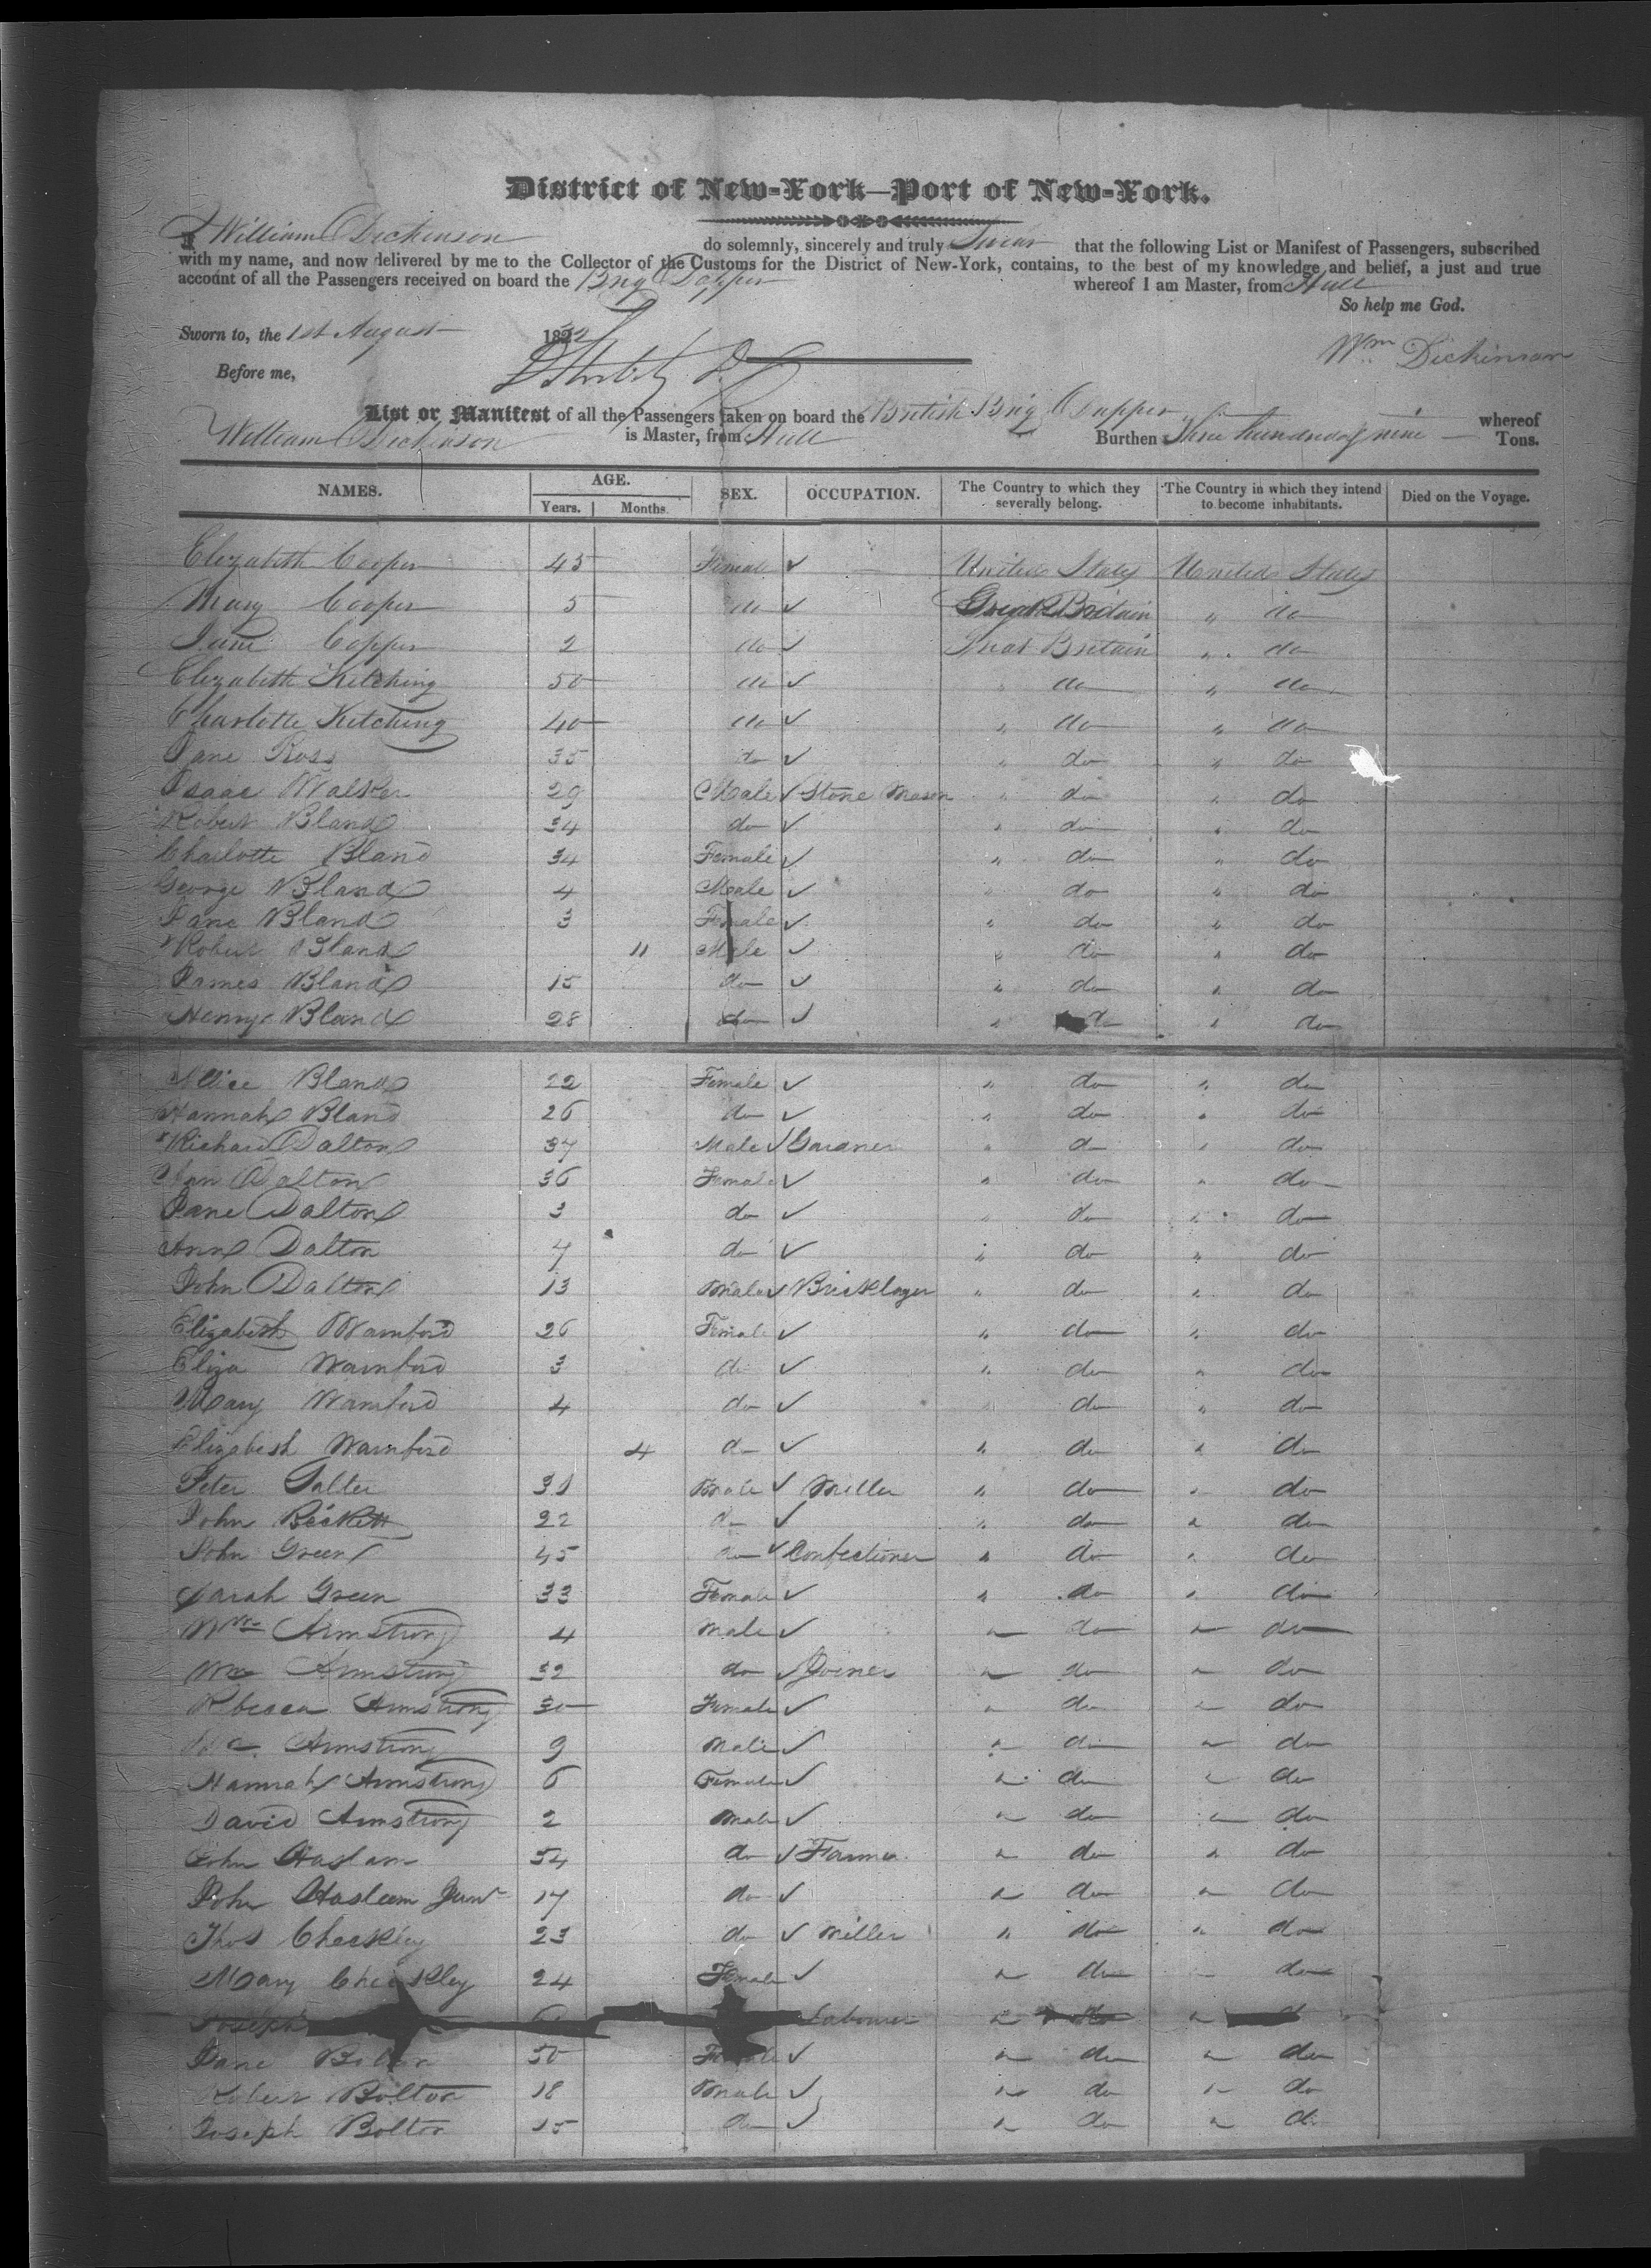 District of New-York—Port of New-York.
I William Dickinson do solemnly, sincerely and truly Swear that the following List or Manifest of Passengers, subscribed
with my name, and now delivered by me to the Collector of the Customs for the District of New-York, contains, to the best of my knowledge and belief, a just and true
account of all the Passengers received on board the Brig Dapper whereof I am Master, from Hull
So help me God.
Sworn to, the 1st August 18
Before me,
Wm Dickinson
List or Manifest of all the Passengers taken on board the British Brig Dapper whereof
William Dickinson is Master, from Hull Burthen Three hundred & nine Tons.
NAMES. AGE. SEX. OCCUPATION. The Country to which they severally belong. The Country in which they intend to become inhabitants. Died on the Voyage.
Years. Months.
Elizabeth Cooper 45 Female ✓ — United States United States
Mary Cooper 5 do ✓ Great Britain " do
Jane Cooper 2 do ✓ Great Britain " do
Elizabeth Kitching 50 do ✓ " do " do
Charlotte Kitching 40 do ✓ " do " do
Jane Ross 35 do ✓ " do " do
Isaac Walker 29 Male ✓ Stone Mason " do " do
Robert Bland 34 do ✓ " do " do
Charlotte Bland 34 Female ✓ " do " do
George Bland 4 Male ✓ " do " do
Jane Bland 3 Female ✓ " do " do
Robert Bland 11 Male ✓ " do " do
James Bland 15 do ✓ " do " do
Henry Bland 28 do ✓ " do " do
Allice Bland 22 Female ✓ " do " do
Hannah Bland 26 do ✓ " do " do
Richard Dalton 37 Male ✓ Gardner " do " do
Ann Dalton 36 Female ✓ " do " do
Jane Dalton 3 do ✓ " do " do
Ann Dalton 7 do ✓ " do " do
John Dalton 13 Male ✓ Bricklayer " do " do
Elizabeth Wamford 26 Female ✓ " do " do
Eliza Wamford 3 do ✓ " do " do
Mary Wamford 4 do ✓ " do " do
Elizabeth Wamford 4 do ✓ " do " do
Peter Salter 31 Male ✓ Miller " do " do
John Beckett 22 do ✓ " do " do
John Green 45 do ✓ Confectioner " do " do
Sarah Green 33 Female ✓ " do " do
Wm Armstrong 4 Male ✓ " do " do
Wm Armstrong 32 do ✓ Joiner " do " do
Rbecca Armstrong 30 Female ✓ " do " do
Armstrong 9 Male ✓ " do " do
Hannah Armstrong 6 Female ✓ " do " do
David Armstrong 2 Male ✓ " do " do
John Haslam 54 do ✓ Farmer " do " do
John Hasleem Junr 17 do ✓ " do " do
Thos Checkley 23 do ✓ Miller " do " do
Mary Checkley 24 Female ✓ " do " do
Joseph Labourer " do " do
Jane Bolton 50 Female ✓ " do " do
Robert Bolton 18 Male ✓ " do " do
Joseph Bolton 15 do ✓ " do " do